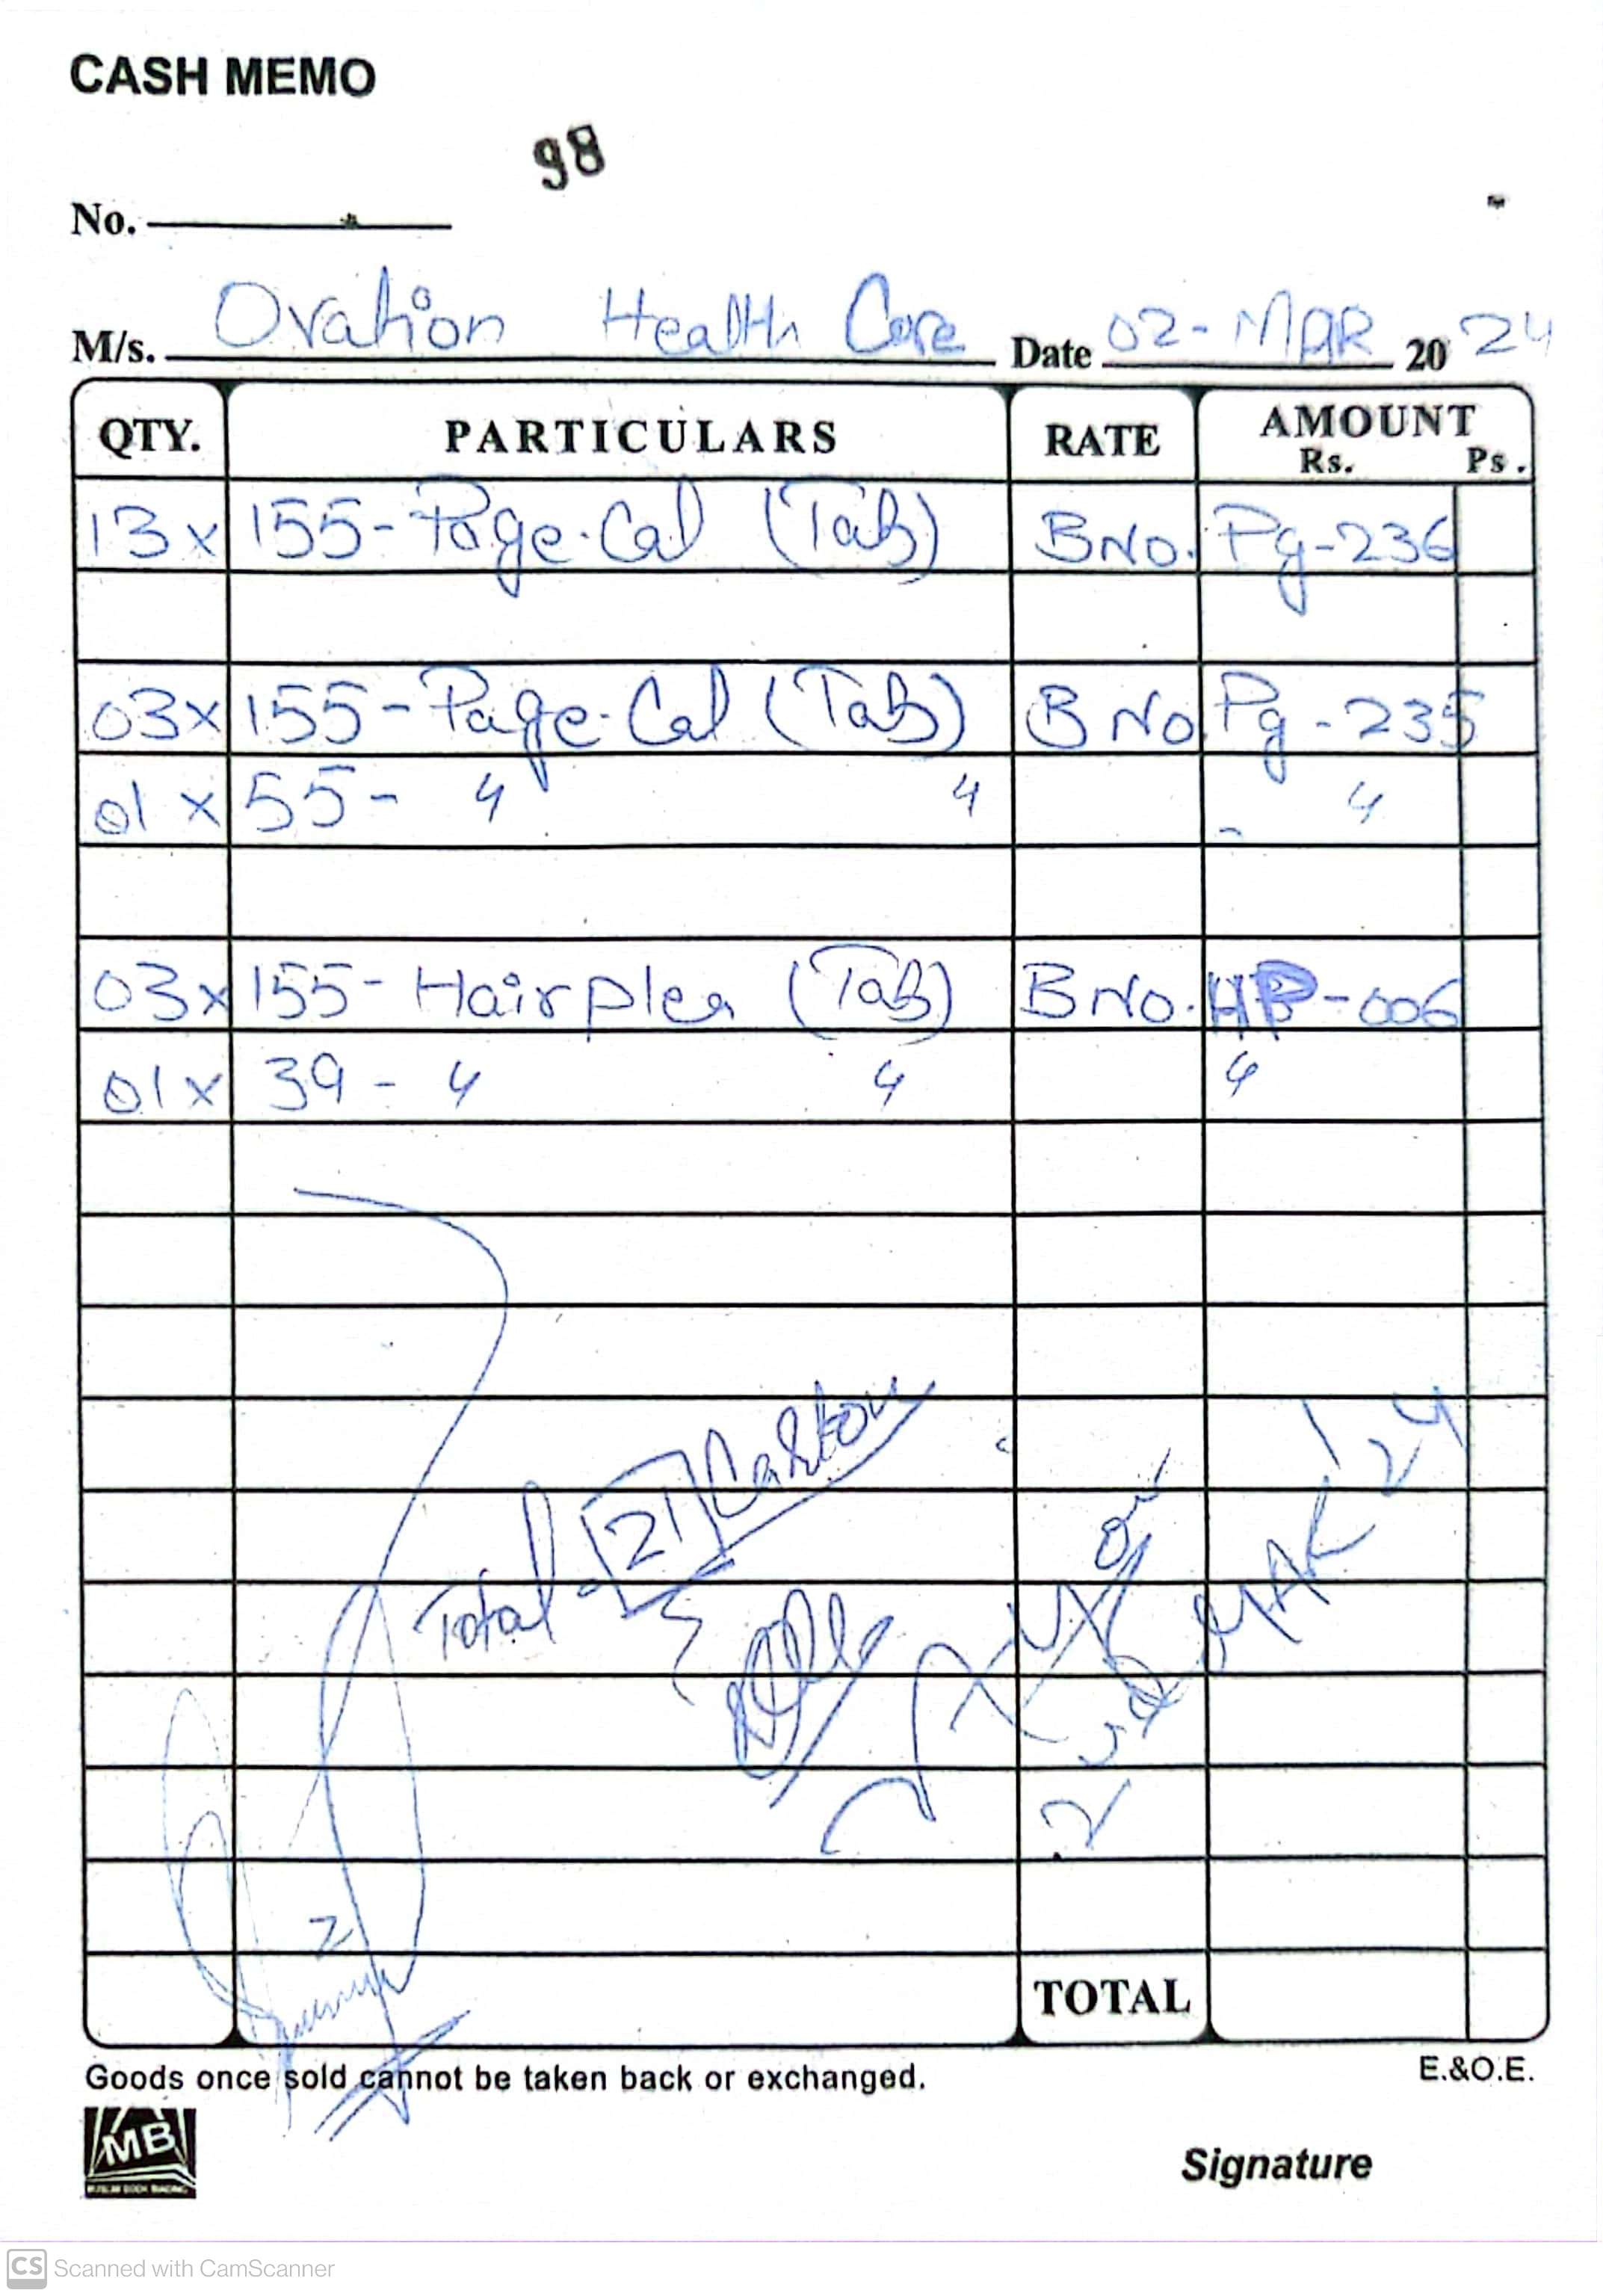 CASH MEMO
98
No.
M/s. Ovation Health Care Date 02-MAR 2024
QTY. PARTICULARS RATE AMOUNT
Rs. Ps.
13x 155-Page-Cal (Tab) B No. Pg-236
03x 155-Page-Cal (Tab) B No Pg-235
01x 55- 〃 〃 〃
03x 155-Hairplex (Tab) B No. HP-006
01x 39- 〃 〃 〃
Total 21 Carton
MAR 24
TOTAL
Goods once sold cannot be taken back or exchanged. E.&O.E.
MB
Signature
CS Scanned with CamScanner